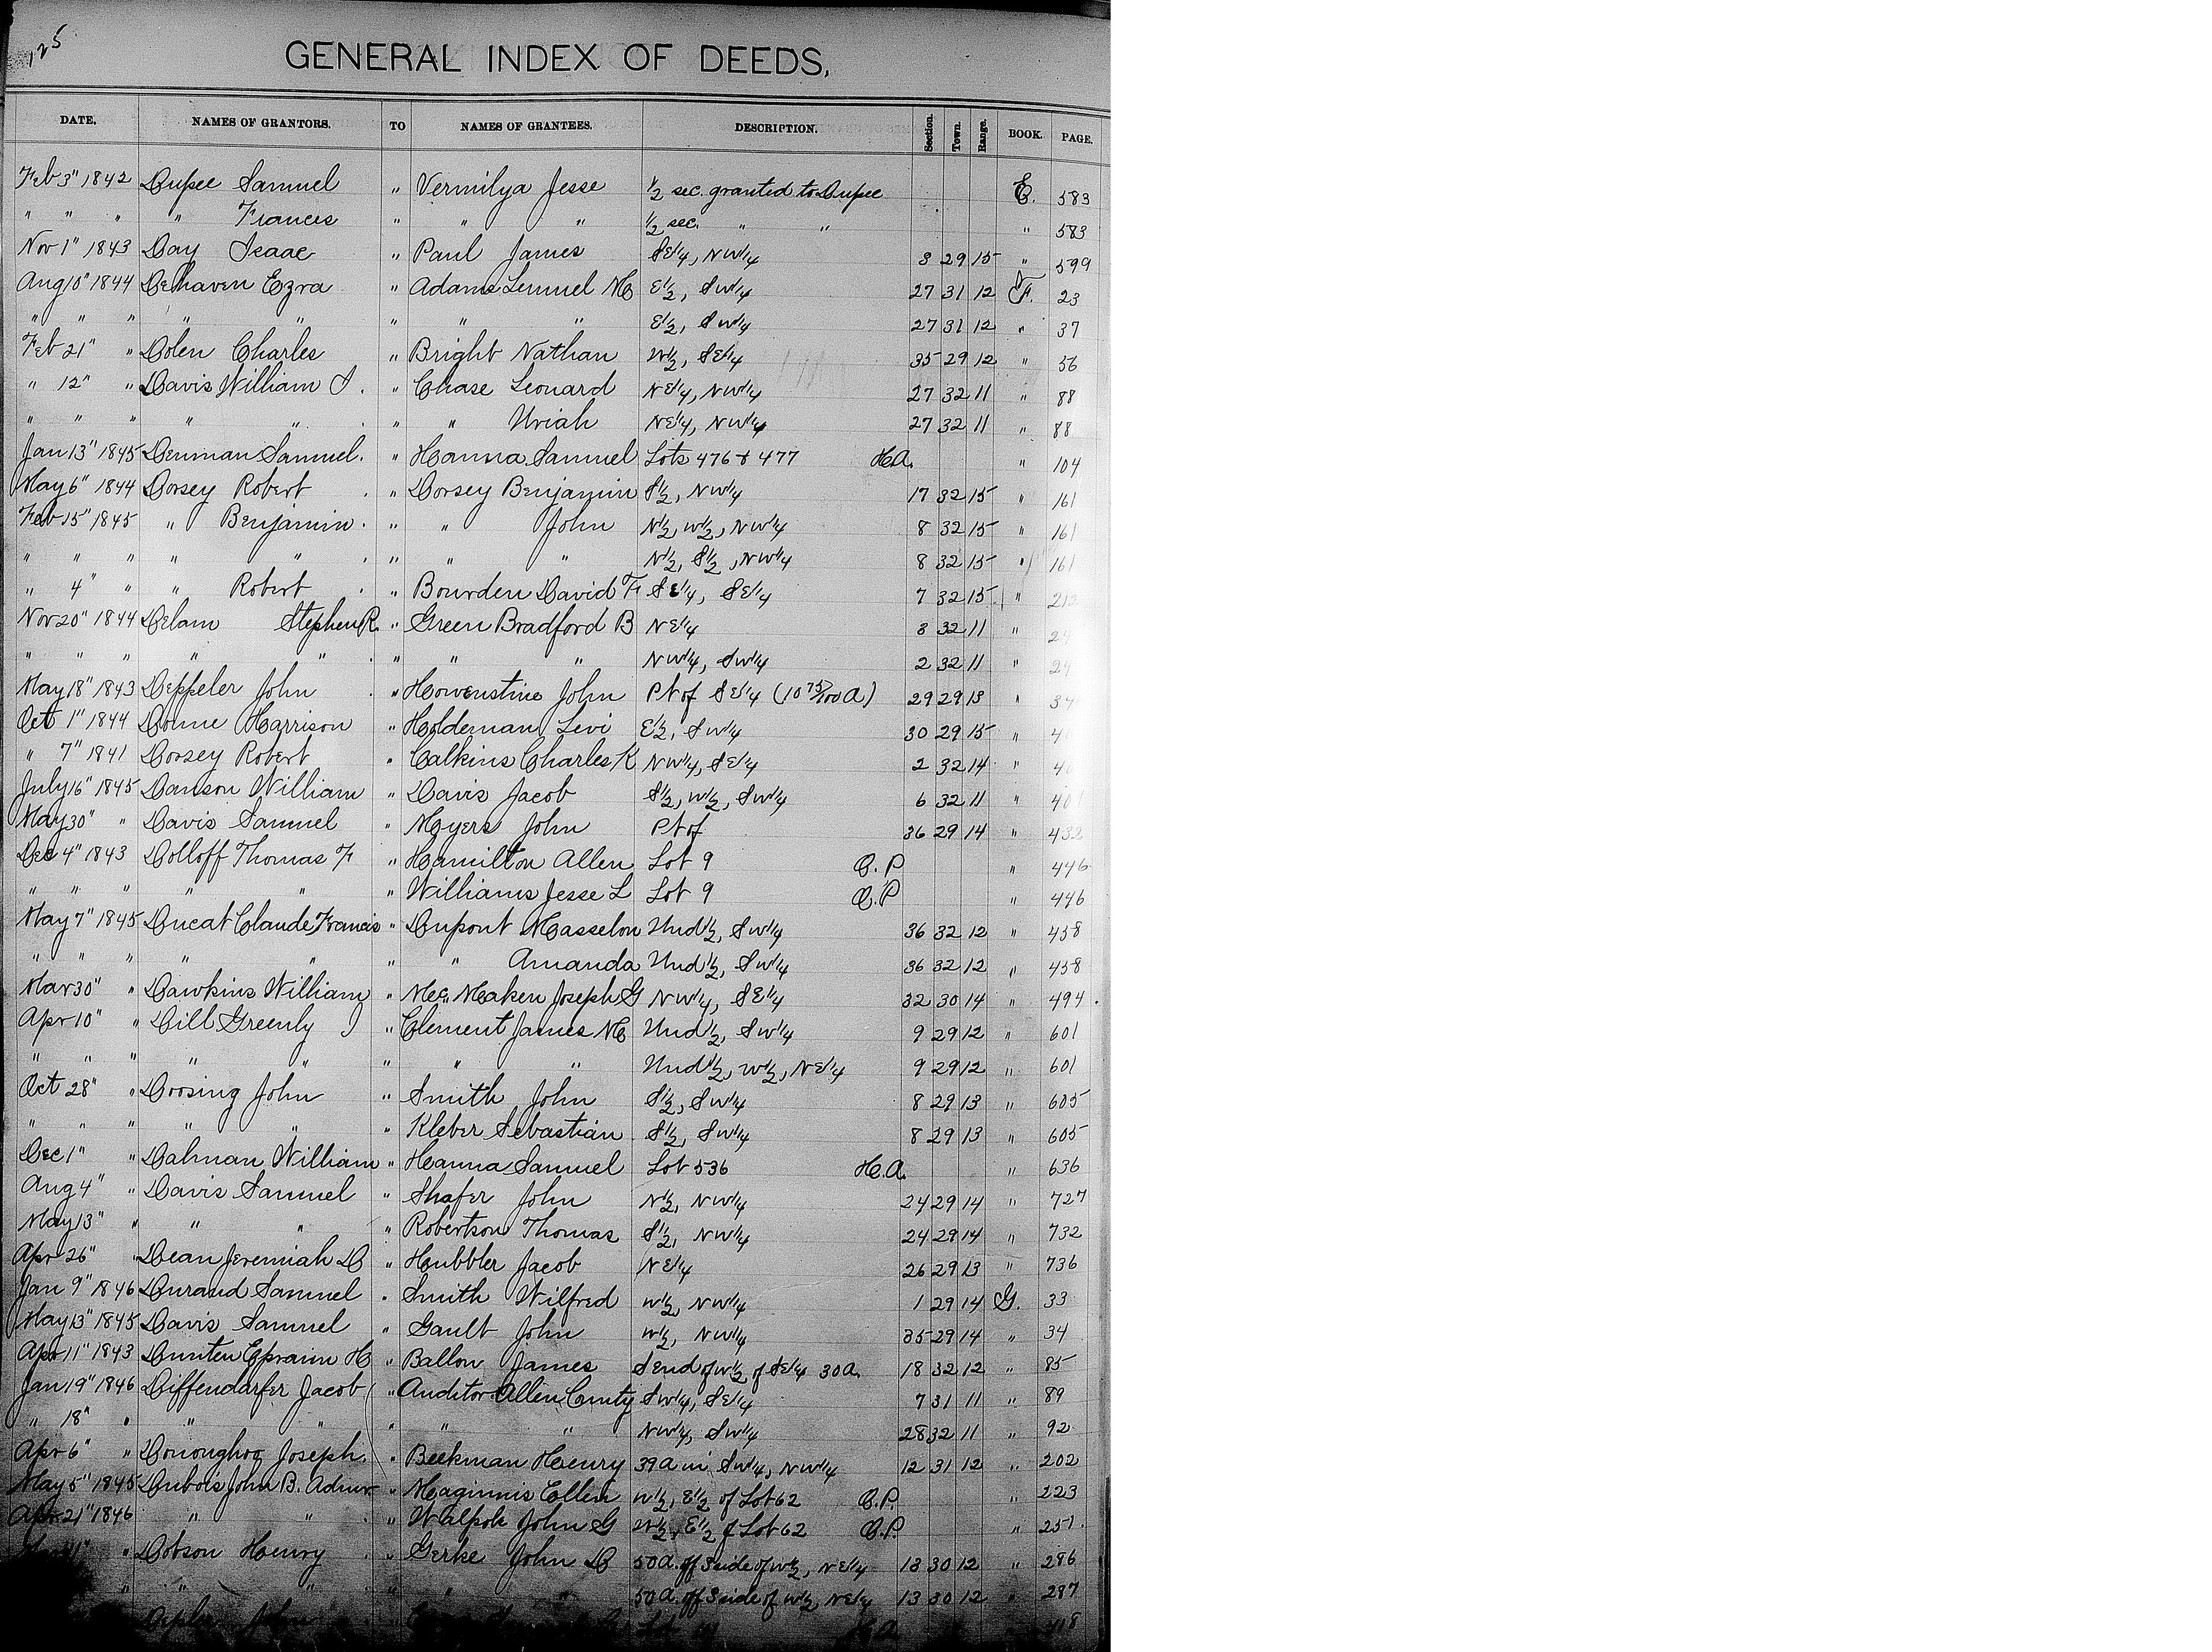 125
GENERAL INDEX OF DEEDS.
DATE. NAMES OF GRANTORS. TO NAMES OF GRANTEES. DESCRIPTION. Section. Town. Range. BOOK. PAGE.
Feb 3" 1842 Dupee Samuel " Vermilya Jesse 1/2 sec. granted to Dupee E. 583
" " " " Frances " " " 1/2 sec. " " " 583
Nov 1" 1843 Day Isaac " Paul James SE1/4, NW1/4 3 29 15 " 599
Aug 10" 1844 Dehaven Ezra " Adams Lemuel M E1/2, SW1/4 27 31 12 F. 23
" " " " " " " " E1/2, SW1/4 27 31 12 " 37
Feb 21" " Dolen Charles " Bright Nathan W1/2, SE1/4 35 29 12 " 56
" 12" " Davis William I. " Chase Leonard NE1/4, NW1/4 27 32 11 " 88
" " " " " " " Uriah NE1/4, NW1/4 27 32 11 " 88
Jan 13" 1845 Denman Samuel. " Hanna Samuel Lots 476 & 477 H.A. " 104
May 6" 1844 Dorsey Robert " Dorsey Benjamin S1/2, NW1/4 17 32 15 " 161
Feb 15" 1845 " Benjamin " " John N1/2, W1/2, NW1/4 8 32 15 " 161
" " " " " " " " N1/2, S1/2, NW1/4 8 32 15 " 161
" 4" " " Robert " Bourden David F SE1/4, SE1/4 7 32 15 "
Nov 20" 1844 Delam Stephen R. " Green Bradford B NE1/4 3 32 11 "
" " " " " " " " NW1/4, SW1/4 2 32 11 "
May 18" 1843 Deppeler John " Howenstine John Pt of SE1/4 (10 75/100 A) 29 29 13 "
Oct 1" 1844 Donne Harrison " Holdeman Levi E1/2, SW1/4 30 29 15 "
" 7" 1841 Dorsey Robert " Calkins Charles K NW1/4, SE1/4 2 32 14 "
July 16" 1845 Danson William " Davis Jacob S1/2, W1/2, SW1/4 6 32 11 " 401
May 30" " Davis Samuel " Myers John Pt of 36 29 14 " 432
Dec 4" 1843 Dolloff Thomas F " Hamilton Allen Lot 9 C.P " 446
" " " " " " Williams Jesse L Lot 9 C.P " 446
May 7" 1845 Ducat Claude Francis " Dupont Masselon Und 1/2, SW1/4 36 32 12 " 458
" " " " " " " Amanda Und 1/2, SW1/4 36 32 12 " 458
Mar 30" " Dawkins William " Mc. Maken Joseph G NW1/4, SE1/4 32 30 14 " 494
Apr 10" " Dill Greenly I " Clement James M Und 1/2, SW1/4 9 29 12 " 601
" " " " " " " " Und 1/2, W1/2, NE1/4 9 29 12 " 601
Oct 28" " Doosing John " Smith John S1/2, SW1/4 8 29 13 " 605
" " " " " " Kleber Sebastian S1/2, SW1/4 8 29 13 " 605
Dec 1" " Dalman William " Hanna Samuel Lot 536 H.A. " 636
Aug 4" " Davis Samuel " Shafer John N1/2, NW1/4 24 29 14 " 727
May 13" " " " " Robertson Thomas S1/2, NW1/4 24 29 14 " 732
Apr 26" " Dean Jeremiah D " Hubbler Jacob NE1/4 26 29 13 " 736
Jan 9" 1846 Durand Samuel " Smith Wilfred W1/2, NW1/4 1 29 14 G. 33
May 13" 1845 Davis Samuel " Gault John W1/2, NW1/4 35 29 14 " 34
Apr 11" 1843 Dunten Epraim H " Ballon James S end of W1/2 of SE1/4 30 A. 18 32 12 " 85
Jan 19" 1846 Diffendarfer Jacob " Auditor Allen County SW1/4, SE1/4 7 31 11 " 89
" 18" " " " " " " NW1/4, SW1/4 28 32 11 " 92
Apr 6" " Donoughog Joseph. " Beekman Henry 39 A in SW1/4, NW1/4 12 31 12 " 202
May 5" 1845 Dubois John B. Admr " Maginnis Ellen W1/2, E1/2 of Lot 62 C.P. " 223
Apr 21" 1846 " " " Walpole John G W1/2, E1/2 of Lot 62 C.P. " 251
" Dobson Henry " Gerke John D 50 A. off S side of W1/2, NE1/4 13 30 12 " 286
" " " " " " 50 A. off S side of W1/2, NE1/4 13 30 12 " 287
John 418